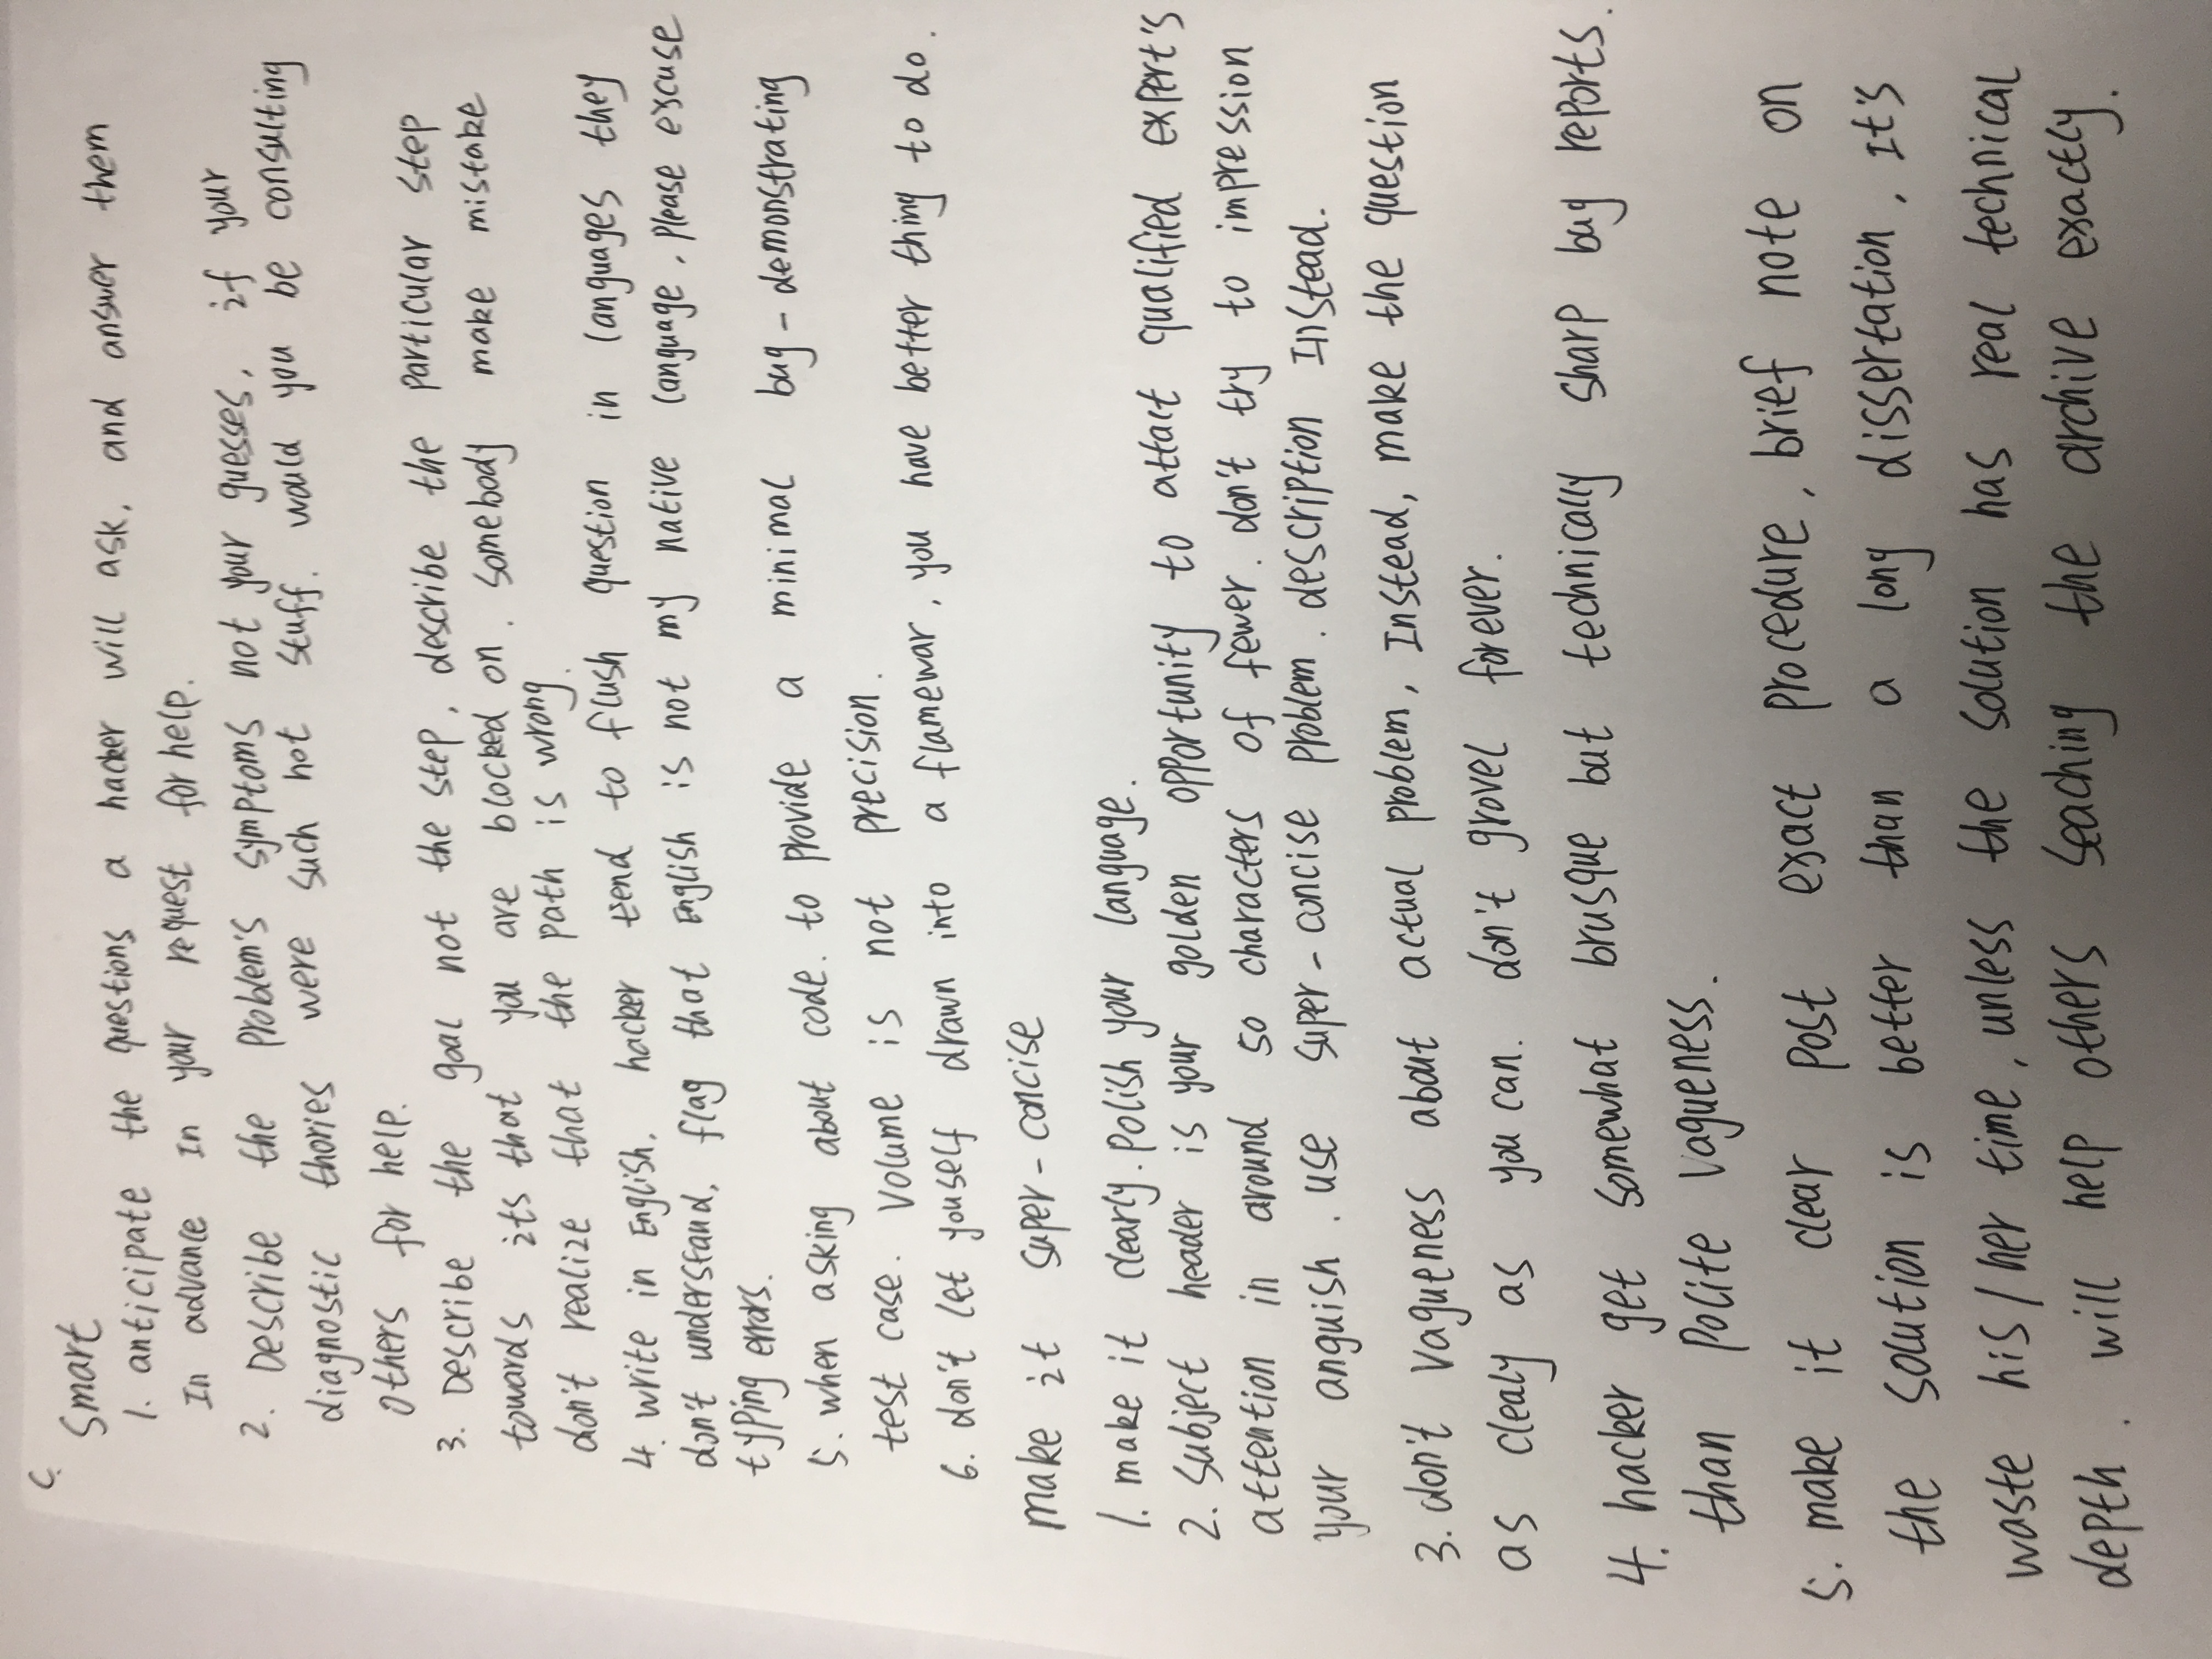 C.
Smart
1. anticipate the questions a hacker will ask, and answer them
In advance In your request for help.
2. Describe the problem's symptoms not your guesses, if your
diagnostic thories were such hot stuff. would you be consulting
others for help.
3. Describe the goal not the step, describe the particular step
towards its that you are blocked on. somebody make mistake
don't realize that the path is wrong.
4. write in English, hacker tend to flush question in languages they
don't understand, flag that English is not my native language, please excuse
typing errors.
5. when asking about code. to provide a minimal bug-demonstrating
test case. Volume is not precision.
6. don't let youself drawn into a flamewar, you have better thing to do.
make it super-concise
1. make it clearly. polish your language.
2. subject header is your golden opportunity to attact qualified expert's
attention in around 50 characters of fewer. don't try to impression
your anguish. use super-concise problem. description Instead.
3. don't vagueness about actual problem, Instead, make the question
as clealy as you can. don't grovel forever.
4. hacker get somewhat brusque but technically sharp bug reports.
than polite vagueness.
5. make it clear post exact procedure, brief note on
the solution is better than a long dissertation, It's
waste his/her time, unless the solution has real technical
depth. will help others seaching the archive exactly.